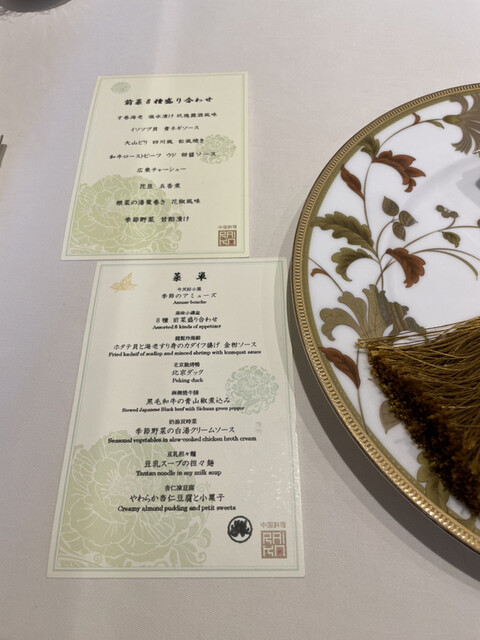 前菜8種盛り合わせ
才巻海老 塩水漬け 玖瑰露酒風味
イソツブ貝 葱ネギソース
大山どり 四川風 松風焼き
和牛ローストビーフ ウド 甜醤ソース
広東チャーシュー
花豆 五香煮
根菜の湯葉巻き 花椒風味
季節野菜 甘酢漬け
中国料理
菜單
季節のアミューズ
Amuse-bouche
8種 前菜盛り合わせ
Assorted 8 kinds of appetizer
ホタテ貝と海老すり身のカダイフ揚げ 金柑ソース
Fried kadaif of scallop and minced shrimp with kumquat sauce
北京烤烤鴨
北京ダック
Peking duck
黒毛和牛の青山椒煮込み
Stewed Japanese Black beef with Sichuan green pepper
季節野菜の白湯クリームソース
Seasonal vegetables in slow-cooked chicken broth cream
豆乳担々麺
豆乳スープの担々麺
Tantan noodle in soy milk soup
杏仁凍豆腐
やわらか杏仁豆腐と小菓子
Creamy almond pudding and petit sweets
中国料理